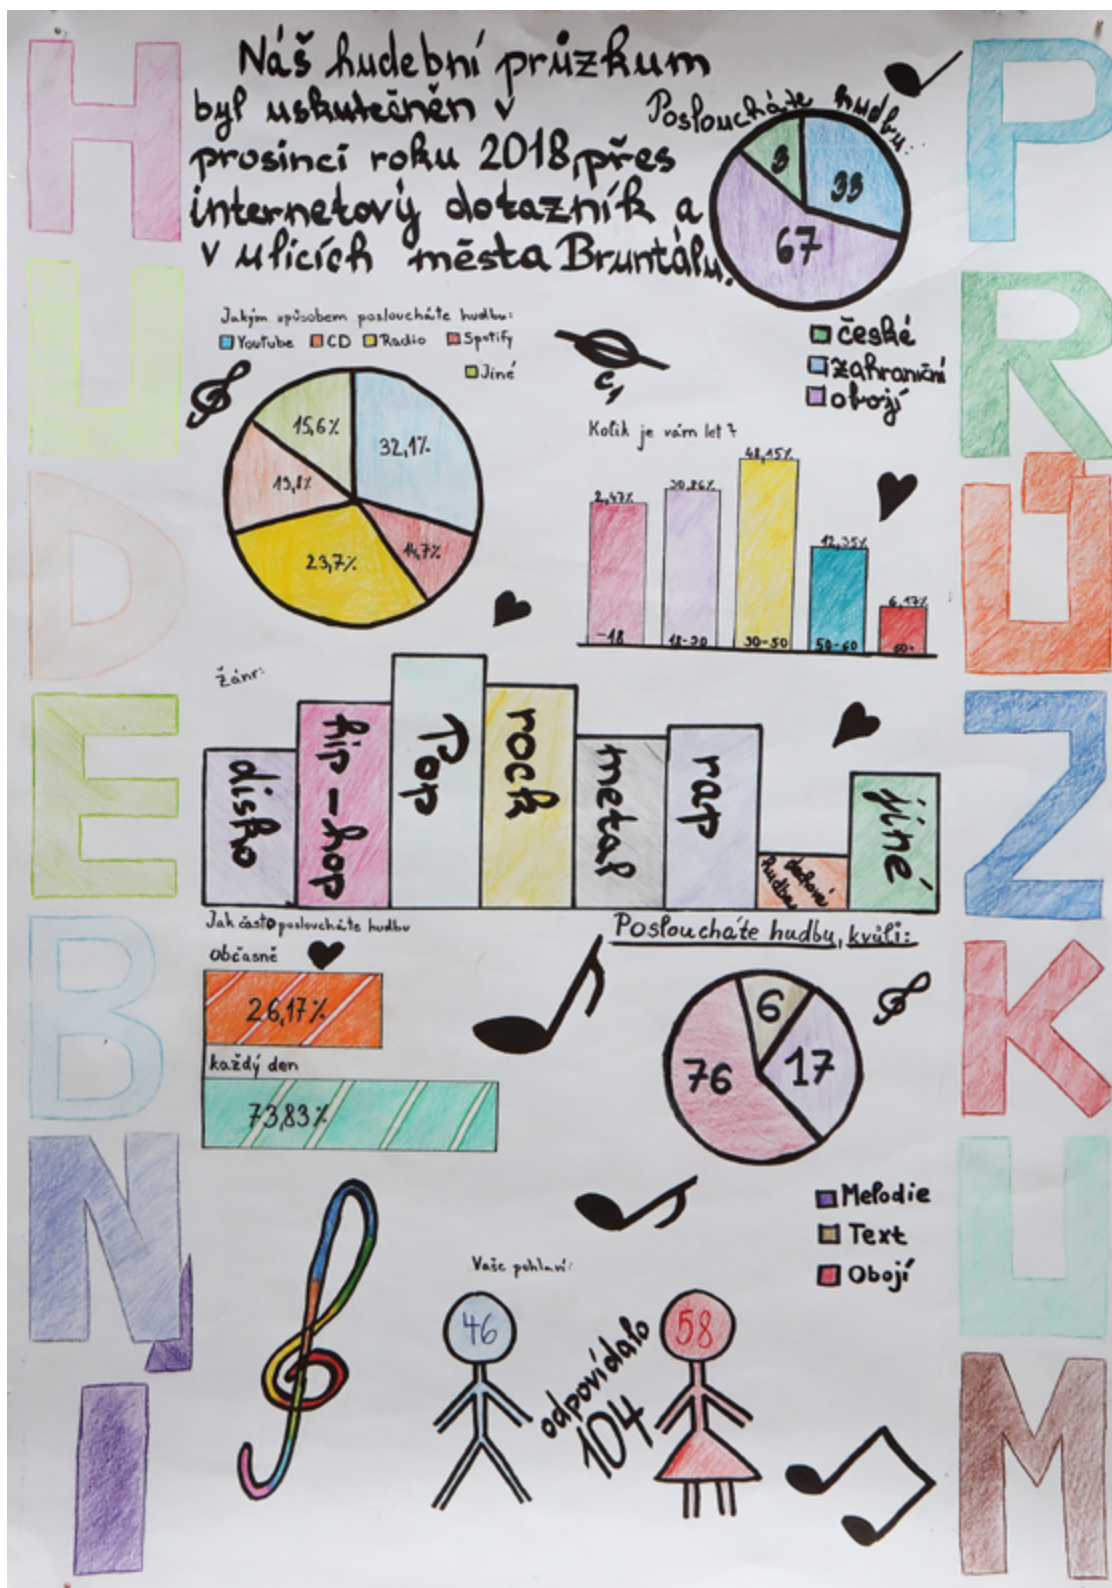 HUDEBNÍ
PRŮZKUM
Náš hudební průzkum
byl uskutečněn v
prosinci roku 2018, přes
internetový dotazník a
v ulicích města Bruntálu.
Posloucháte hudbu:
3
33
67
české
zahraniční
obojí
Jakým způsobem posloucháte hudbu:
Youtube CD Radio Spotify
Jiné
15,6%
32,1%
13,8%
23,7%
14,7%
C1
Kolik je vám let?
2,47%
30,86%
48,15%
12,35%
6,17%
-18
18-30
30-50
50-60
60+
Žánr:
disko
hip-hop
Pop
rock
metal
rap
dechová
hudba
jiné
Jak často posloucháte hudbu
Občasně
26,17%
každý den
73,83%
Posloucháte hudbu, kvůli:
6
76
17
Melodie
Text
Obojí
Vaše pohlaví:
46
odpovídalo
104
58